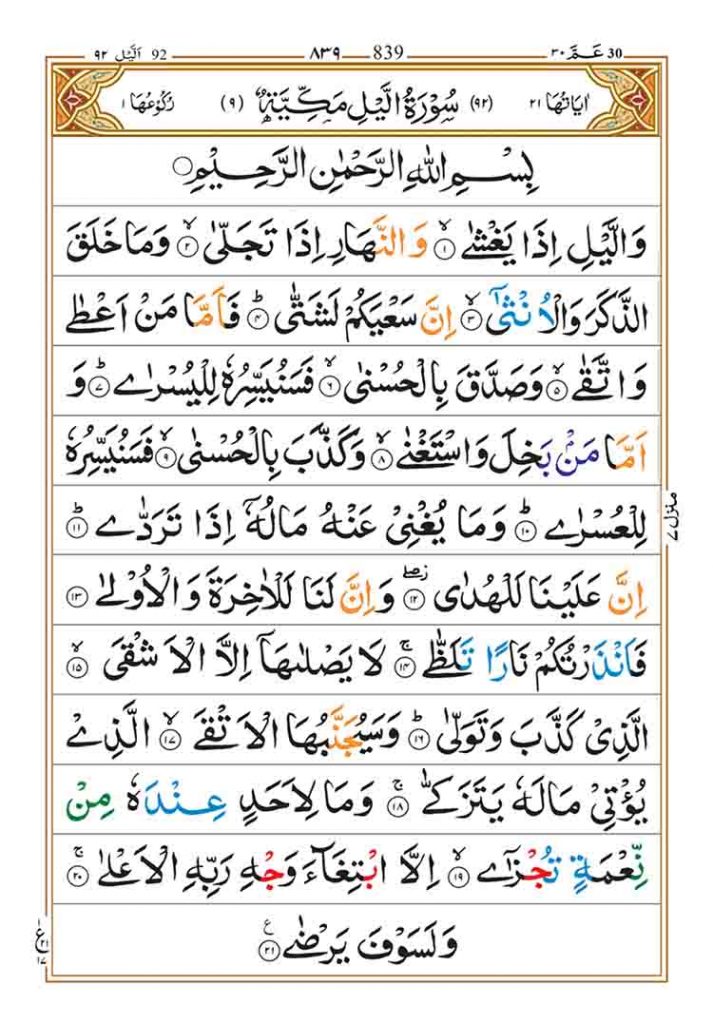 ٩٢ اَلَّيْل 92 ٨٣٩ 839 عَمَّ ٣٠ 30
اٰيَاتُهَا ٢١ (٩٢) سُوْرَةُ الَّيْلِ مَكِّيَّةٌ (٩) رُكُوْعُهَا ١
بِسْمِ اللهِ الرَّحْمٰنِ الرَّحِيْمِ ○
وَالَّيْلِ اِذَا يَغْشٰى ۙ﴿١﴾ وَالنَّهَارِ اِذَا تَجَلّٰى ۙ﴿٢﴾ وَمَا خَلَقَ
الذَّكَرَ وَالْاُنْثٰٓى ۙ﴿٣﴾ اِنَّ سَعْيَكُمْ لَشَتّٰى ؕ﴿٤﴾ فَاَمَّا مَنْ اَعْطٰى
وَاتَّقٰى ۙ﴿٥﴾ وَصَدَّقَ بِالْحُسْنٰى ۙ﴿٦﴾ فَسَنُيَسِّرُهٗ لِلْيُسْرٰى ؕ﴿٧﴾ وَ
اَمَّا مَنْۢ بَخِلَ وَاسْتَغْنٰى ۙ﴿٨﴾ وَكَذَّبَ بِالْحُسْنٰى ۙ﴿٩﴾ فَسَنُيَسِّرُهٗ
لِلْعُسْرٰى ؕ﴿١٠﴾ وَمَا يُغْنِيْ عَنْهُ مَالُهٗٓ اِذَا تَرَدّٰى ؕ﴿١١﴾
اِنَّ عَلَيْنَا لَلْهُدٰى ۖ﴿١٢﴾ وَاِنَّ لَنَا لَلْاٰخِرَةَ وَالْاُوْلٰى ﴿١٣﴾
فَاَنْذَرْتُكُمْ نَارًا تَلَظّٰى ۚ﴿١٤﴾ لَا يَصْلٰىهَآ اِلَّا الْاَشْقَى ۙ﴿١٥﴾
الَّذِيْ كَذَّبَ وَتَوَلّٰى ؕ﴿١٦﴾ وَسَيُجَنَّبُهَا الْاَتْقَى ۙ﴿١٧﴾ الَّذِيْ
يُؤْتِيْ مَالَهٗ يَتَزَكّٰى ۚ﴿١٨﴾ وَمَا لِاَحَدٍ عِنْدَهٗ مِنْ
نِّعْمَةٍ تُجْزٰٓى ۙ﴿١٩﴾ اِلَّا ابْتِغَآءَ وَجْهِ رَبِّهِ الْاَعْلٰى ۚ﴿٢٠﴾
وَلَسَوْفَ يَرْضٰى ﴿٢١﴾ ع
منزل ٧
ع ٢١ ١٧